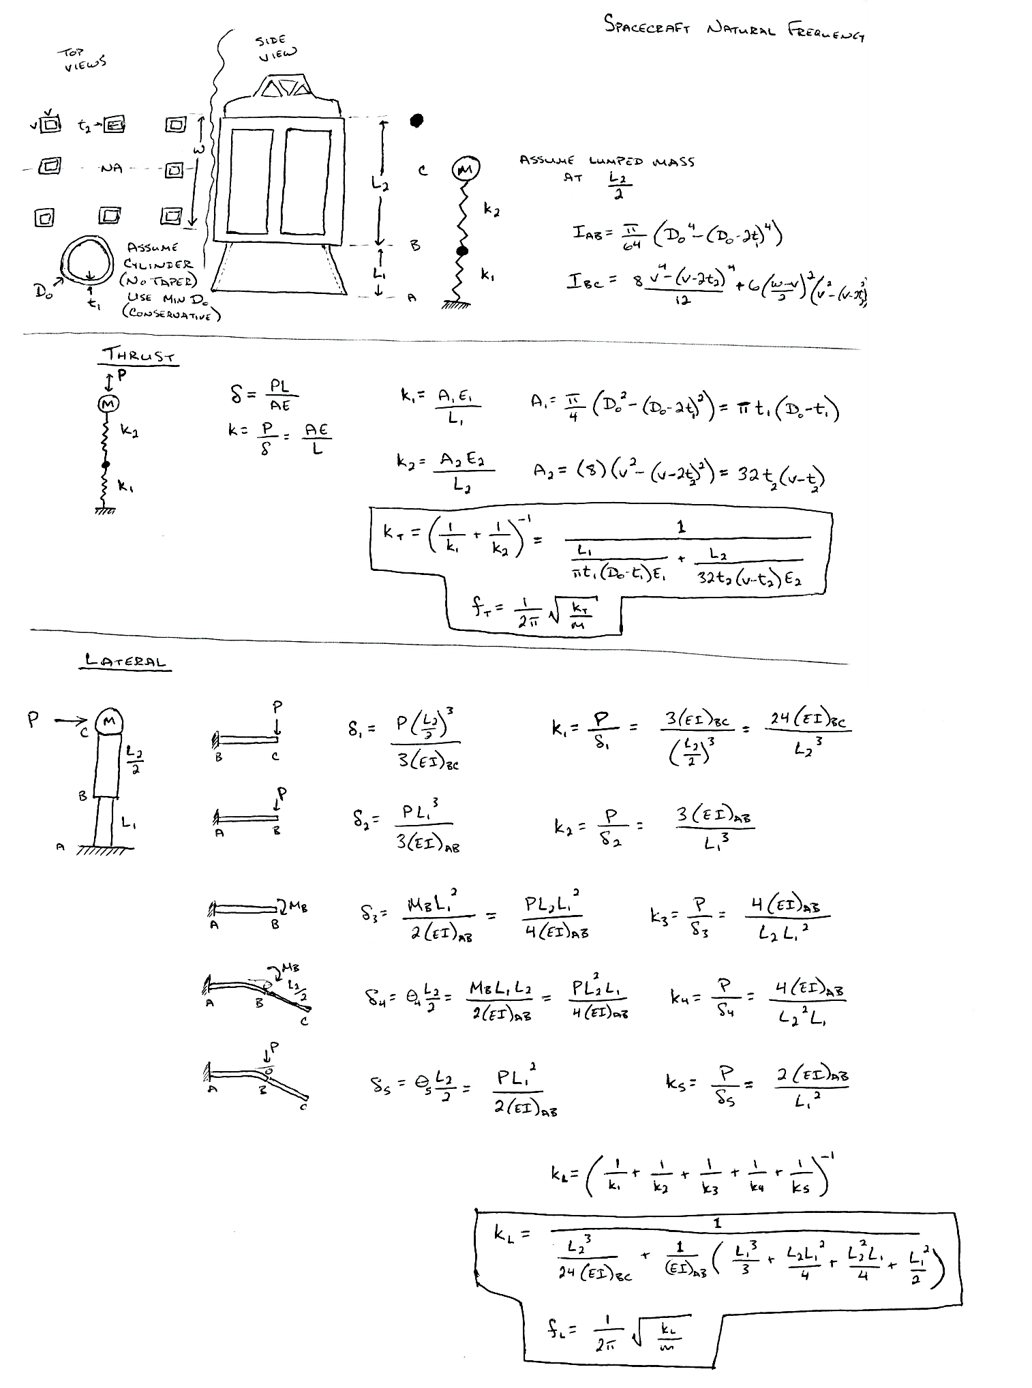 SPACECRAFT NATURAL FREQUENCY
TOP VIEWS
SIDE VIEW
v
v
t₂
W
NA
L₂
L₁
C
B
A
D₀
t₁
ASSUME
CYLINDER
(NO TAPER)
USE MIN D₀
(CONSERVATIVE)
M
k₂
k₁
ASSUME LUMPED MASS
AT L₂/2
I_AB = π/64 (D₀⁴-(D₀-2t)⁴)
I_BC = 8 (v⁴-(v-2t₂)⁴)/12 + 6((w-v)/2)²(v²-(v-2t₂)²)
THRUST
P
M
k₂
k₁
δ = PL/AE
k = P/δ = AE/L
k₁ = A₁E₁/L₁
A₁ = π/4 (D₀²-(D₀-2t₁)²) = πt₁(D₀-t₁)
k₂ = A₂E₂/L₂
A₂ = (8)(v²-(v-2t₂)²) = 32t₂(v-t₂)
k_T = (1/k₁ + 1/k₂)⁻¹ = 1/(L₁/(πt₁(D₀-t₁)E₁) + L₂/(32t₂(v-t₂)E₂))
f_T = 1/2π √(k_T/m)
LATERAL
P
M
C
L₂/2
B
L₁
A
P
B C
δ₁ = P(L₂/2)³/3(EI)_BC
k₁ = P/δ₁ = 3(EI)_BC/(L₂/2)³ = 24(EI)_BC/L₂³
P
A B
δ₂ = PL₁³/3(EI)_AB
k₂ = P/δ₂ = 3(EI)_AB/L₁³
M_B
A B
δ₃ = M_B L₁²/2(EI)_AB = PL₂L₁²/4(EI)_AB
k₃ = P/δ₃ = 4(EI)_AB/L₂L₁²
M_B
L₂/2
A B C
δ₄ = θ₄ L₂/2 = M_B L₁L₂/2(EI)_AB = PL₂²L₁/4(EI)_AB
k₄ = P/δ₄ = 4(EI)_AB/L₂²L₁
P
A B C
δ₅ = θ₅ L₂/2 = PL₁²/2(EI)_AB
k₅ = P/δ₅ = 2(EI)_AB/L₁²
k_L = (1/k₁ + 1/k₂ + 1/k₃ + 1/k₄ + 1/k₅)⁻¹
k_L = 1/(L₂³/24(EI)_BC + 1/(EI)_AB (L₁³/3 + L₂L₁²/4 + L₂²L₁/4 + L₁²/2))
f_L = 1/2π √(k_L/m)